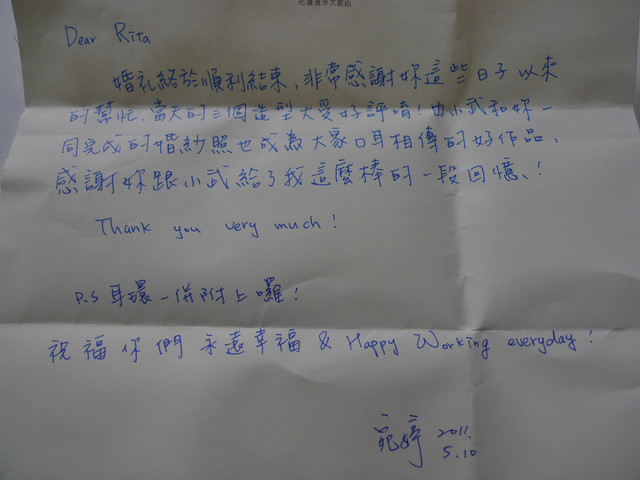 花蓮遠來大飯店
Dear Rita
婚礼終於順利結束,非常感謝妳這些日子以來
的幫忙.當天的三個造型大受好評唷!由小武和妳一
同完成的婚紗照也成為大家口耳相傳的好作品,
感謝妳跟小武給了我這麼棒的一段回憶、!
Thank you very much!
P.S 耳環一併附上囉!
祝福你們永遠幸福 & Happy Working everyday!
宛婷 2011.
5.10